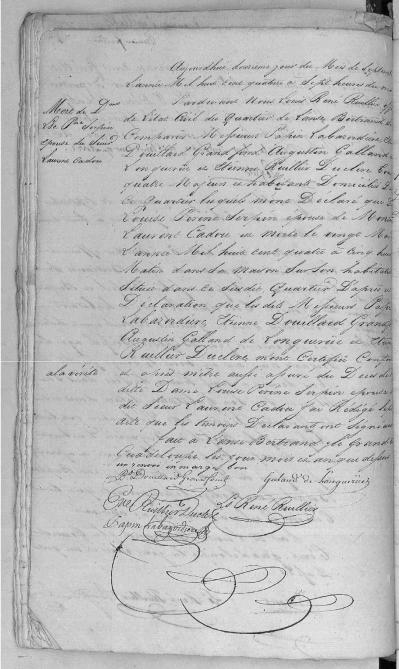 Mort de D.me
Lse Pne Serpin
épouse du Sieur
Laurent Cadou
Aujourdhui douzieme jour du Mois de Septembre
l'année Mil huit cent quatre à Sept heures du
Pardevant Nous Louis René Ruillier
de l'état Civil du Quartier de Lanse Bertrand
Comparu Messieurs Papin Labazordiere
Douillard Grandfond Augustin Galland
Longuerüe et Etienne Ruillier Duclerc
quatre Majeurs et habitans Domiciliés
Ce Quartier lesquels mont Declaré que
Louise Perine Serpin épouse de
Laurent Cadou est morte le vingt
L'année Mil huit cent quatre à Cinq
Matin dans la Maison Sur Son habitation
Située dans ce Susdit Quartier D'après
Declaration que les dits Messieurs Papin
Labazordiere, Etienne Douillard Grand
Augustin Galland de Longuerüe et
Ruillier Duclerc, mont Certifié
a la verité
et après mêtre aussi assuré du Deces de
dite Dame Louise Perine Serpin épouse
dit Sieur Laurent Cadou J'ai Rédigé
acte que les Temoins Declarant ont signé
fait à Lanse Bertrand, Isle Grande
Guadeloupe les jour mois et an que dessus
un renvoi en marge bon
Douillard Grandfond
Galand de Longuerüe
Ruillier Duclerc
Ls René Ruillier
Papin Labazordiere